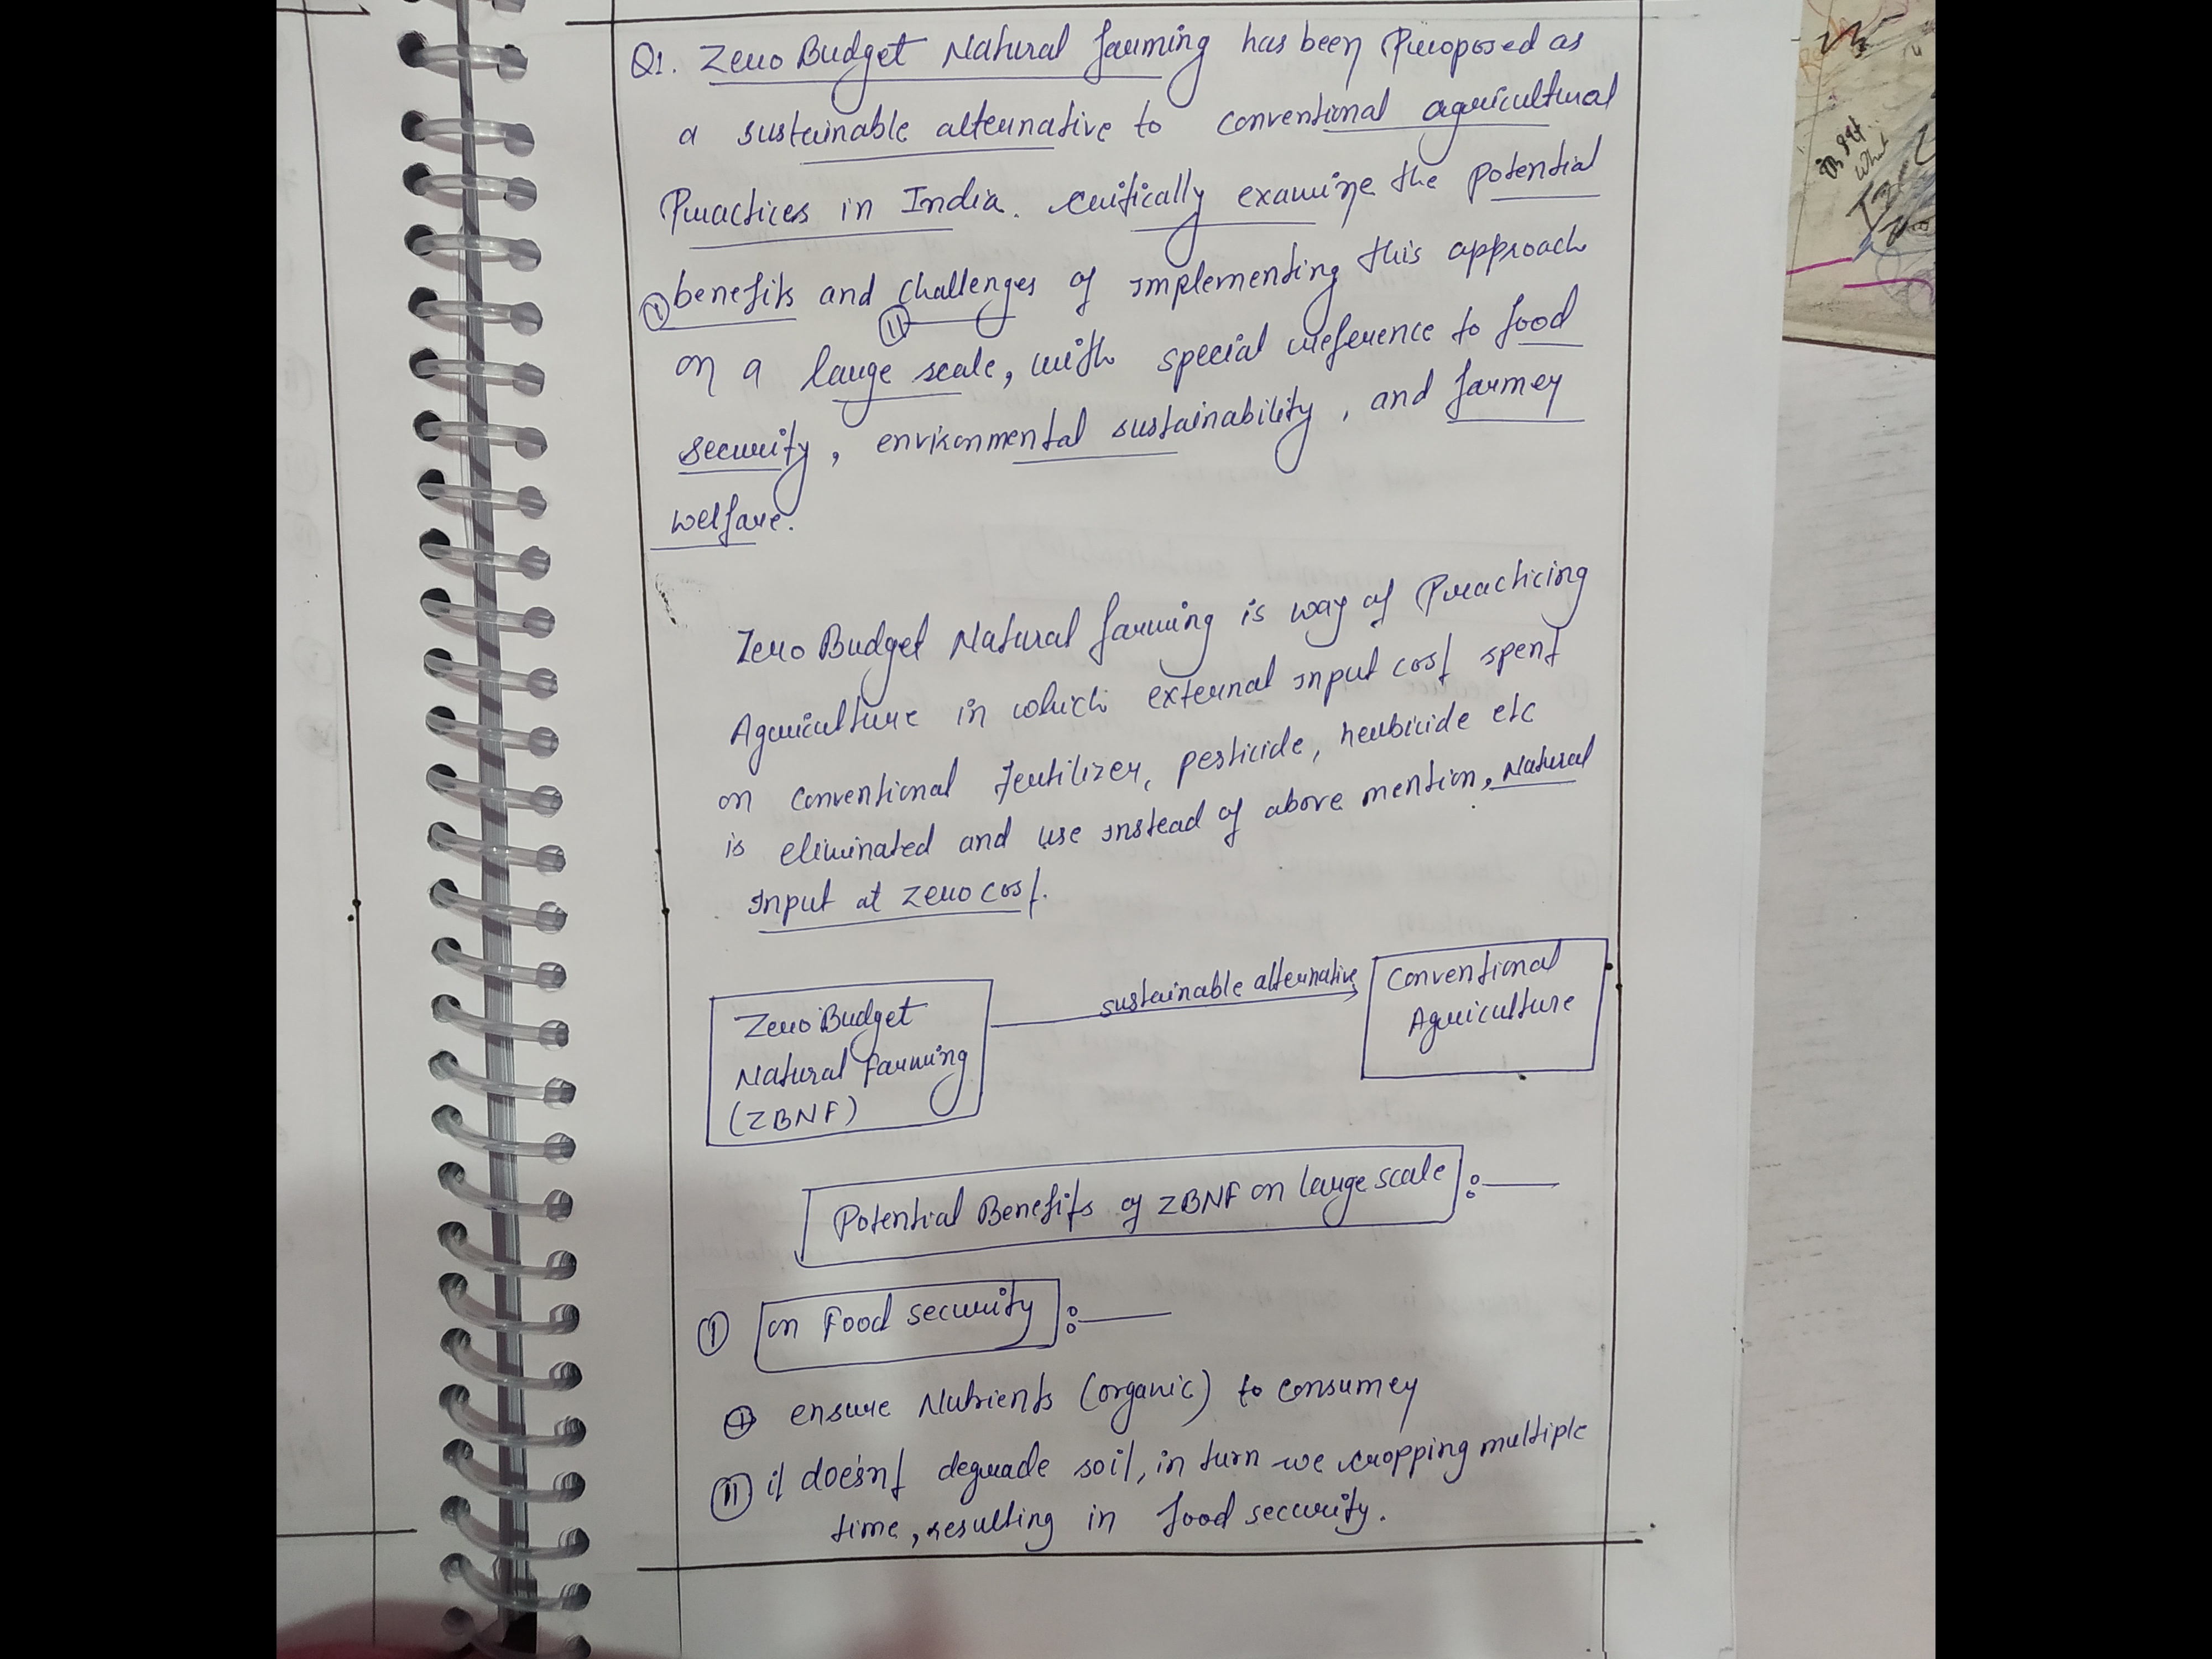 Q1. Zero Budget Natural farming has been Proposed as
a sustainable alternative to conventional agricultural
Practices in India. critically examine the potential
I benefits and challenges of implementing this approach
II
on a large scale, with special reference to food
security, environmental sustainability, and farmer
welfare.
Zero Budget Natural farming is way of Practicing
Agriculture in which external input cost spent
on conventional fertilizer, pesticide, herbicide etc
is eliminated and use instead of above mention, Natural
input at zero cost.
Zero Budget
Natural farming
(ZBNF)
sustainable alternative
Conventional
Agriculture
Potential Benefits of ZBNF on large scale :-
I on Food security :-
I ensure Nutrients (organic) to consumer
II it doesn't degrade soil, in turn we cropping multiple
time, resulting in food security.